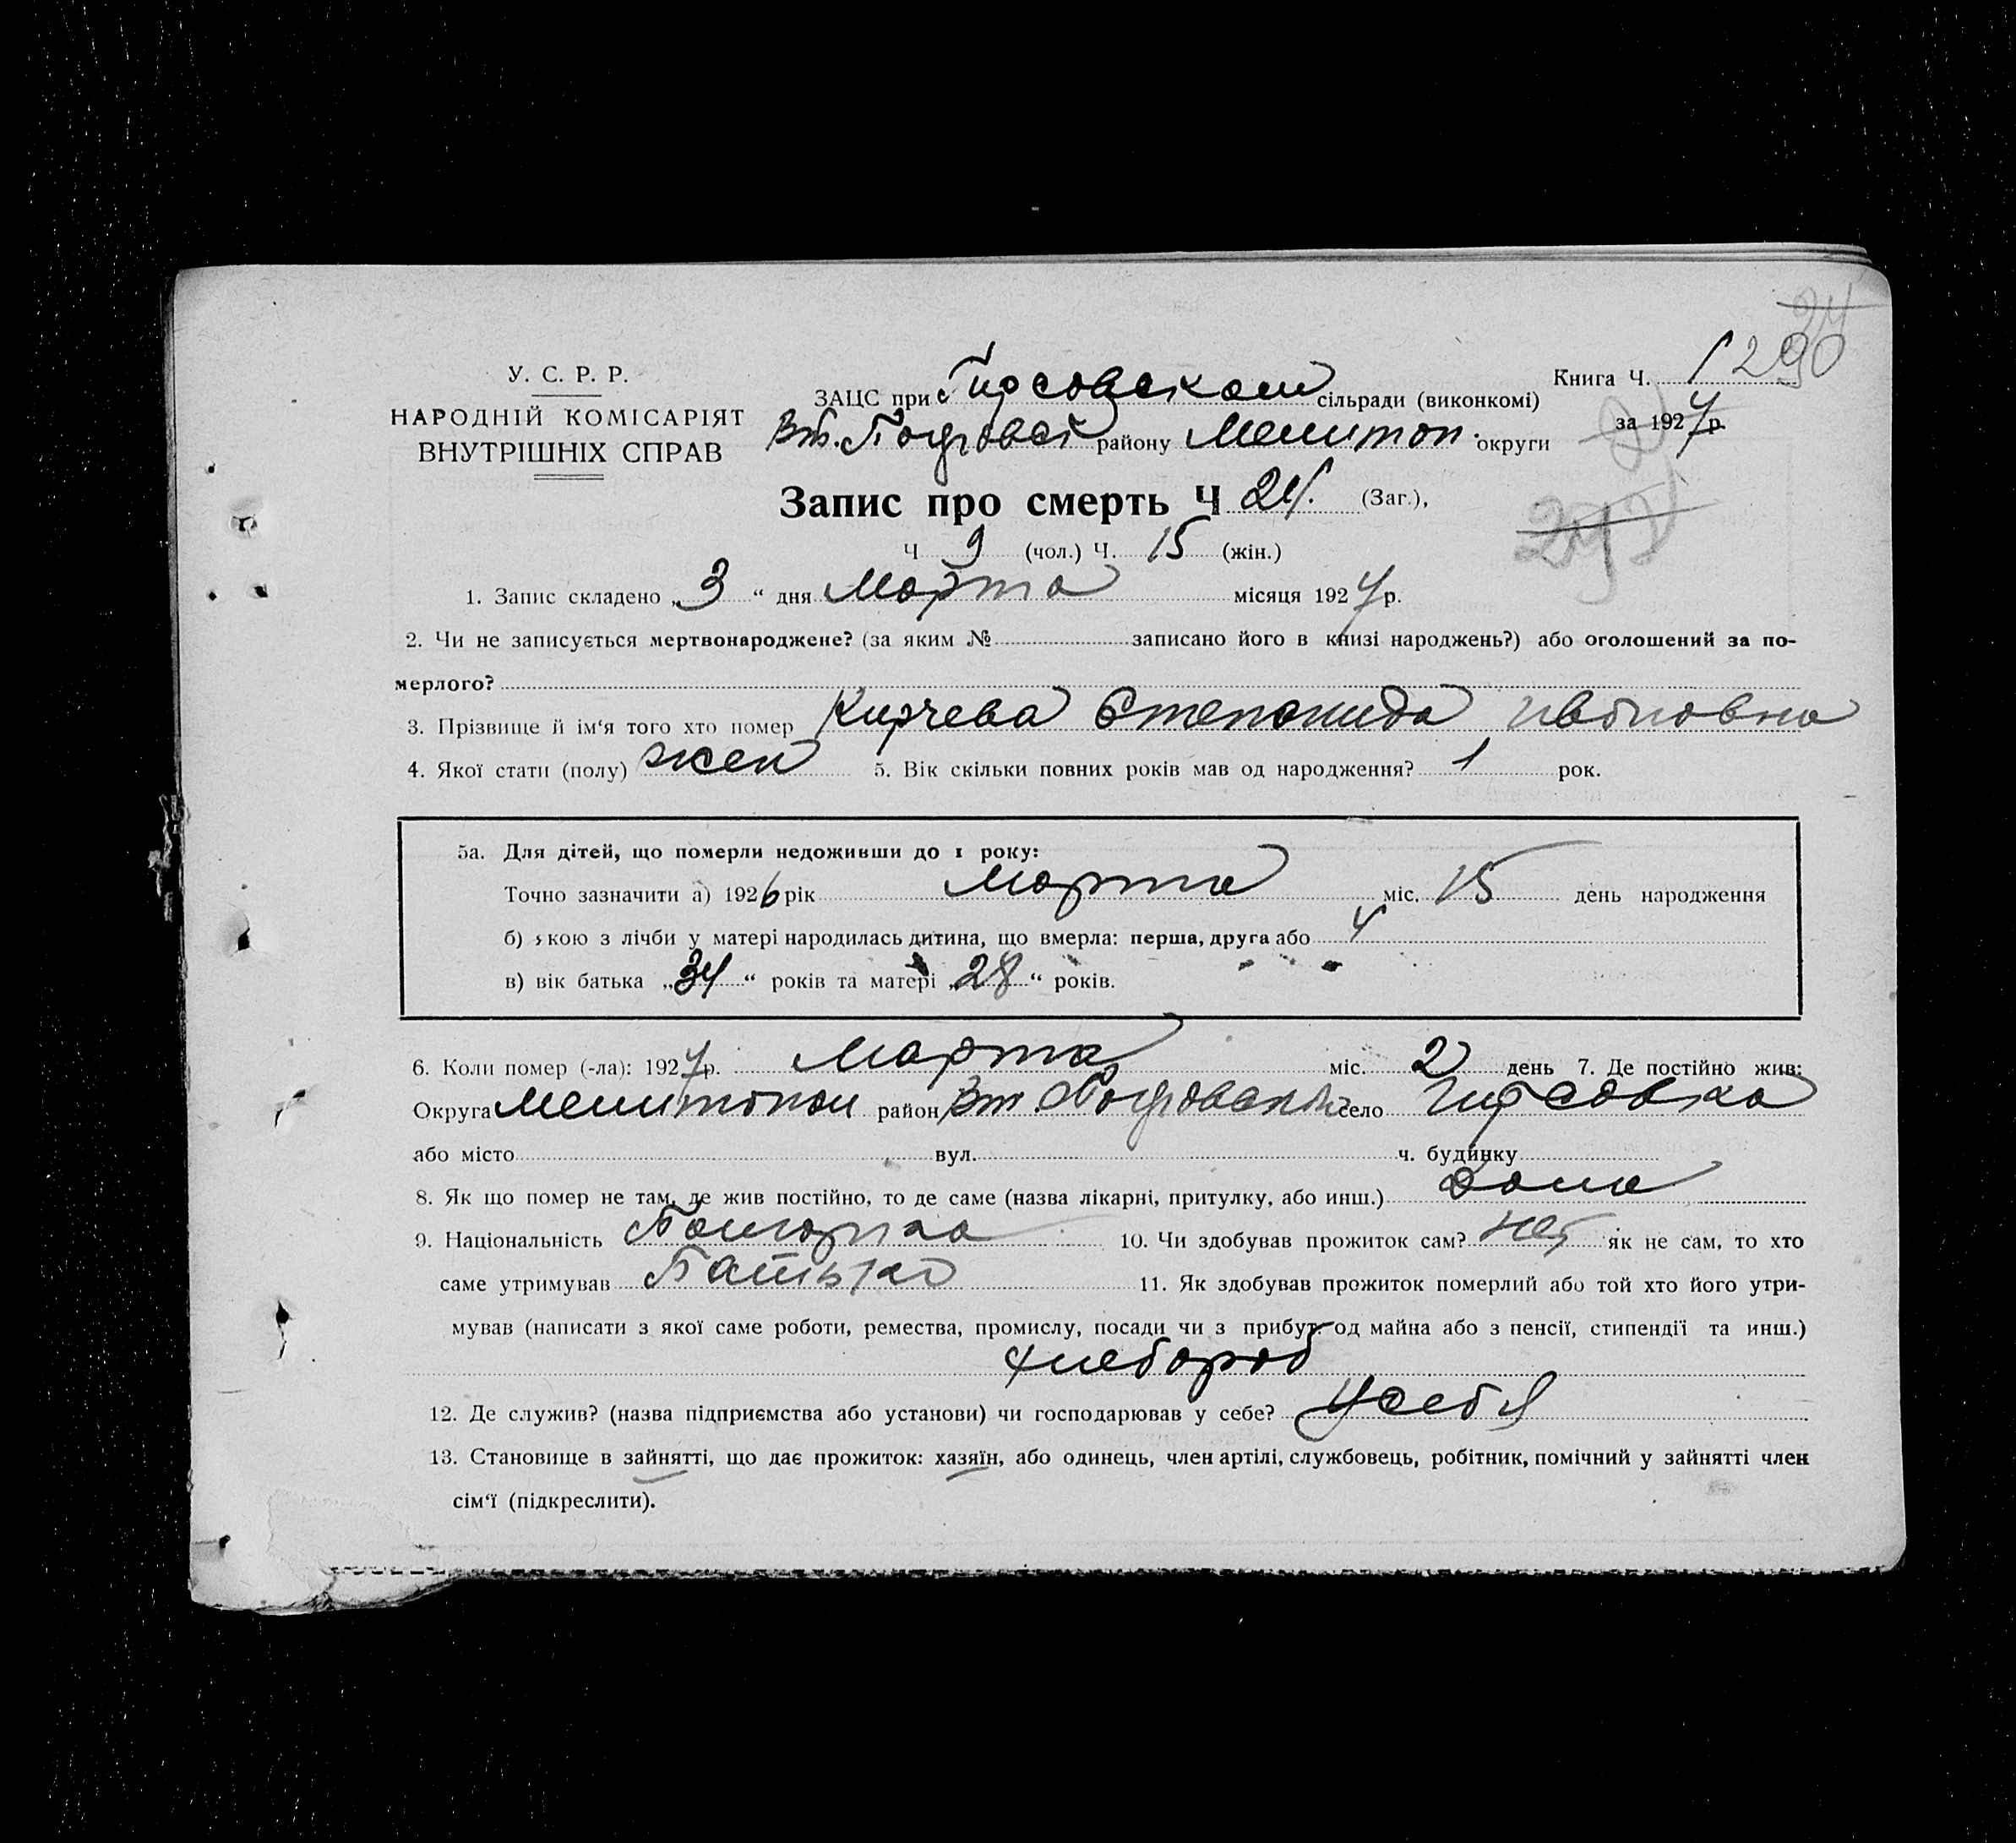 У. С. Р. Р.
НАРОДНІЙ КОМІСАРІЯТ
ВНУТРІШНІХ СПРАВ
Книга Ч. 1 290
за 1927 р.
ЗАЦС при с Гирсовском сільради (виконкомі)
Вт. району Мелитоп. округи
Запис про смерть Ч 24. (Заг.),
Ч 9 (чол.) Ч. 15 (жін.)
1. Запис складено „3“ дня Марта місяця 1927 р.
2. Чи не записується мертвонароджене? (за яким № записано його в книзі народжень?) або оголошений за по-
мерлого?
3. Прізвище й ім'я того хто помер Кирчева Степанида Ивановна
4. Якої стати (полу) жен 5. Вік скільки повних років мав од народження? 1 рок.
5а. Для дітей, що померли недоживши до 1 року:
Точно зазначити а) 1926 рік Марта міс. 15 день народження
б) якою з лічби у матері народилась дитина, що вмерла: перша, друга або 4
в) вік батька „34“ років та матері „28“ років.
6. Коли помер (-ла): 1927 р. Марта міс. 2 день 7. Де постійно жив:
Округа Мелитопол район Вт. село Гирсовка
або місто вул. ч. будинку
8. Як що помер не там, де жив постійно, то де саме (назва лікарні, притулку, або инш.) дома
9. Національність Болгарка 10. Чи здобував прожиток сам? нет як не сам, то хто
саме утримував Батько 11. Як здобував прожиток померлий або той хто його утри-
мував (написати з якої саме роботи, ремества, промислу, посади чи з прибут. од майна або з пенсії, стипендії та инш.)
хлебороб
12. Де служив? (назва підприємства або установи) чи господарював у себе? У себя
13. Становище в зайнятті, що дає прожиток: хазяїн, або одинець, член артілі, службовець, робітник, помічний у зайнятті член
сім'ї (підкреслити).